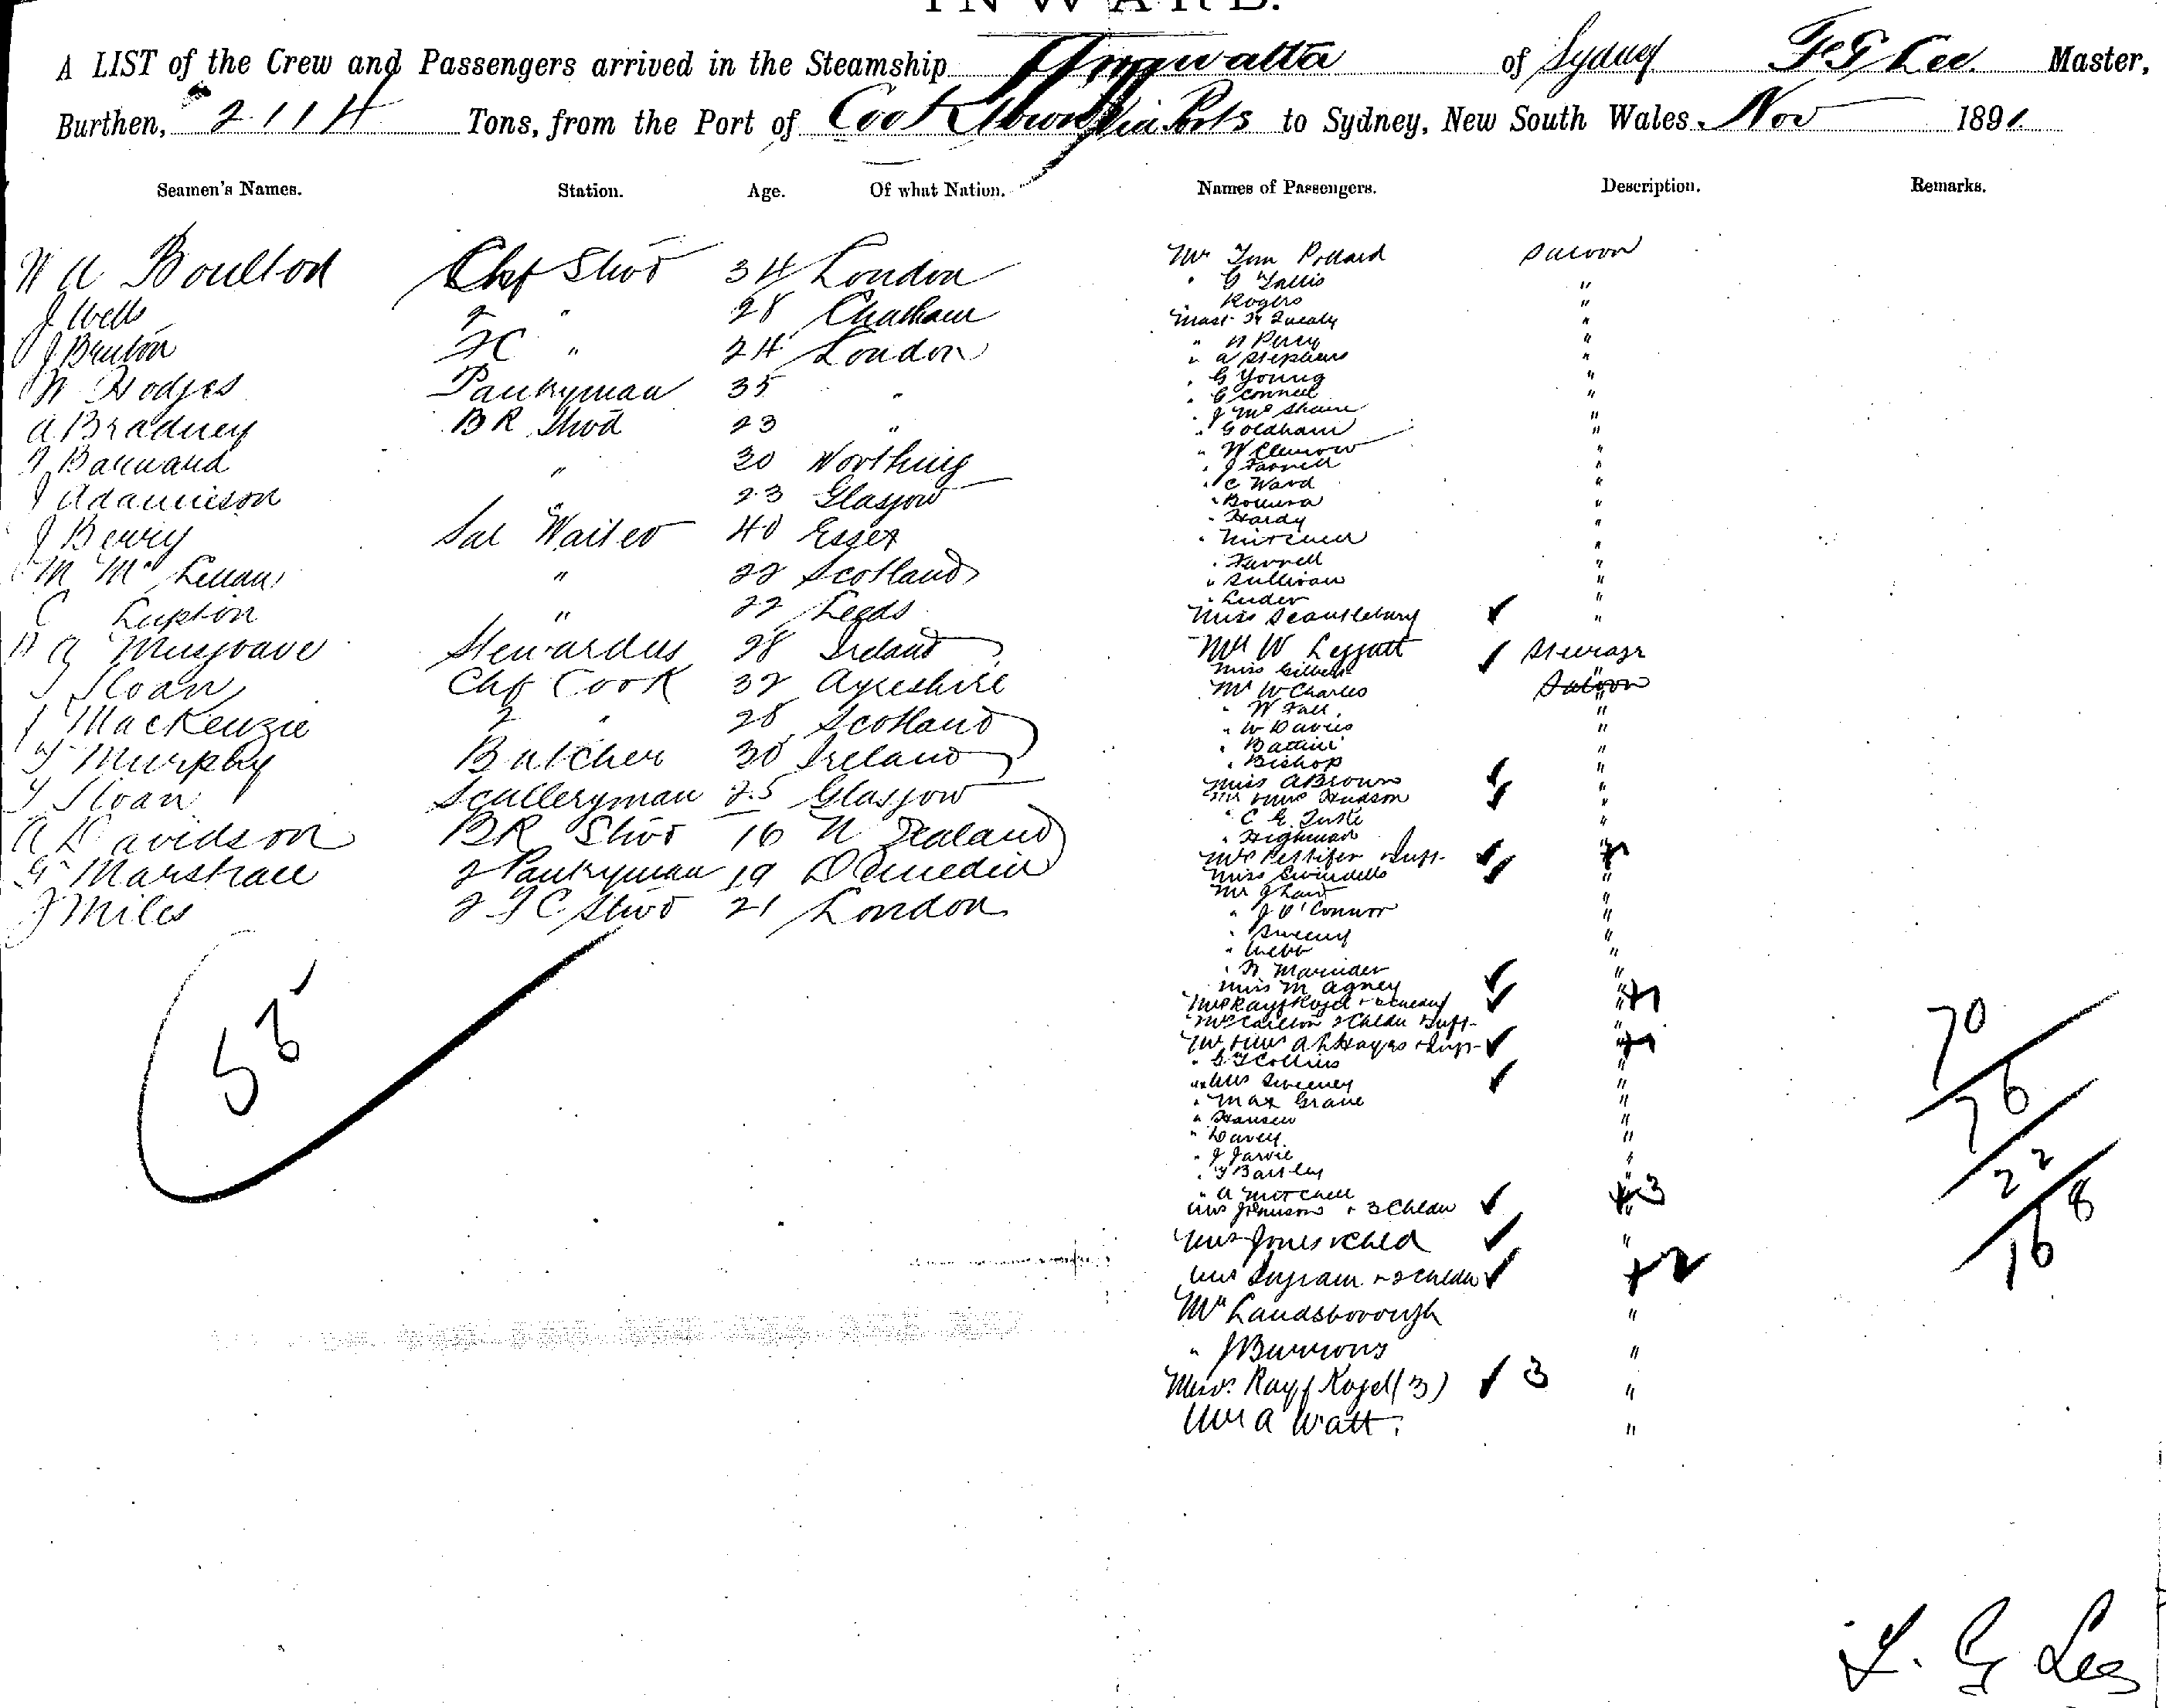 INWARD.
A LIST of the Crew and Passengers arrived in the Steamship Arawatta of Sydney F G Lee Master,
Burthen, 2114 Tons, from the Port of Cooktown Via Ports to Sydney, New South Wales Nov 1891
Seamen's Names. Station. Age. Of what Nation.
W A Boulton Chf Stwd 34 London
J Wells 2 " 28 Chatham
J Bruton FC " 24 London
W Hodges Pantryman 35 "
A Bradney B R Stwd 23 "
Barnard " 30 Worthing
J Adamson " 23 Glasgow
J Berry Sal Waiter 40 Essex
M Mc Lellan " 22 Scotland
C Lupton " 22 Leeds
Musgrave Stewardess 28 Ireland
Sloan Chf Cook 32 Ayreshire
J MacKenzie 2 " 28 Scotland
Murphy Butcher 30 Ireland
Sloan Sculleryman 25 Glasgow
A Davidson BR Stwd 16 N Zealand
G Marshall 2 Pantryman 19 Dunedin
J Miles 2 F C Stwd 21 London
55
Names of Passengers. Description. Remarks.
Mr Tom Pollard Saloon
" G Tallis "
" Rogers "
Mast W Quealy "
" W Percy "
" A Stephens "
" G Young "
" G Connell "
" J Mc Shane "
" Goldham "
" W "
" J Farrell "
" C Ward "
" "
" Hardy "
" Mitchell "
" Farrell "
" Sullivan "
" Luder "
Miss Scantlebury "
Mr W Leggatt Steerage
Miss Gilbert
Mr W Charles Saloon "
" W Hall "
" W Davies "
" "
" Bishop "
Miss A Brown "
Mr & Mrs Hudson "
" C E "
" Highman "
Mrs Pettifer & Inft 1
Miss Swindells "
Mr J Law "
" J O'Connor "
" Sweeny "
" Webb "
" "
Miss M Agney "
Mrs Rayfkogel
Mrs Carlton 2 Childn & Inft "
Mr & Mrs A L Hayes & Inft 1
" G F Collins "
" Mrs Sweeney "
" Max Grane "
" Hansen "
" Davey "
" J Jarvie "
" Bartley "
" A Mitchell "
Mrs Johnson & 3 Childn + 3
Mrs Jones & Child "
Mrs Ingram & 2 Childn + 2
Mr Landsborough "
" J Burrows "
Miss Rayfkogel (3) 3 "
Mr A Watt. "
70
76
22
168
F. G Lee